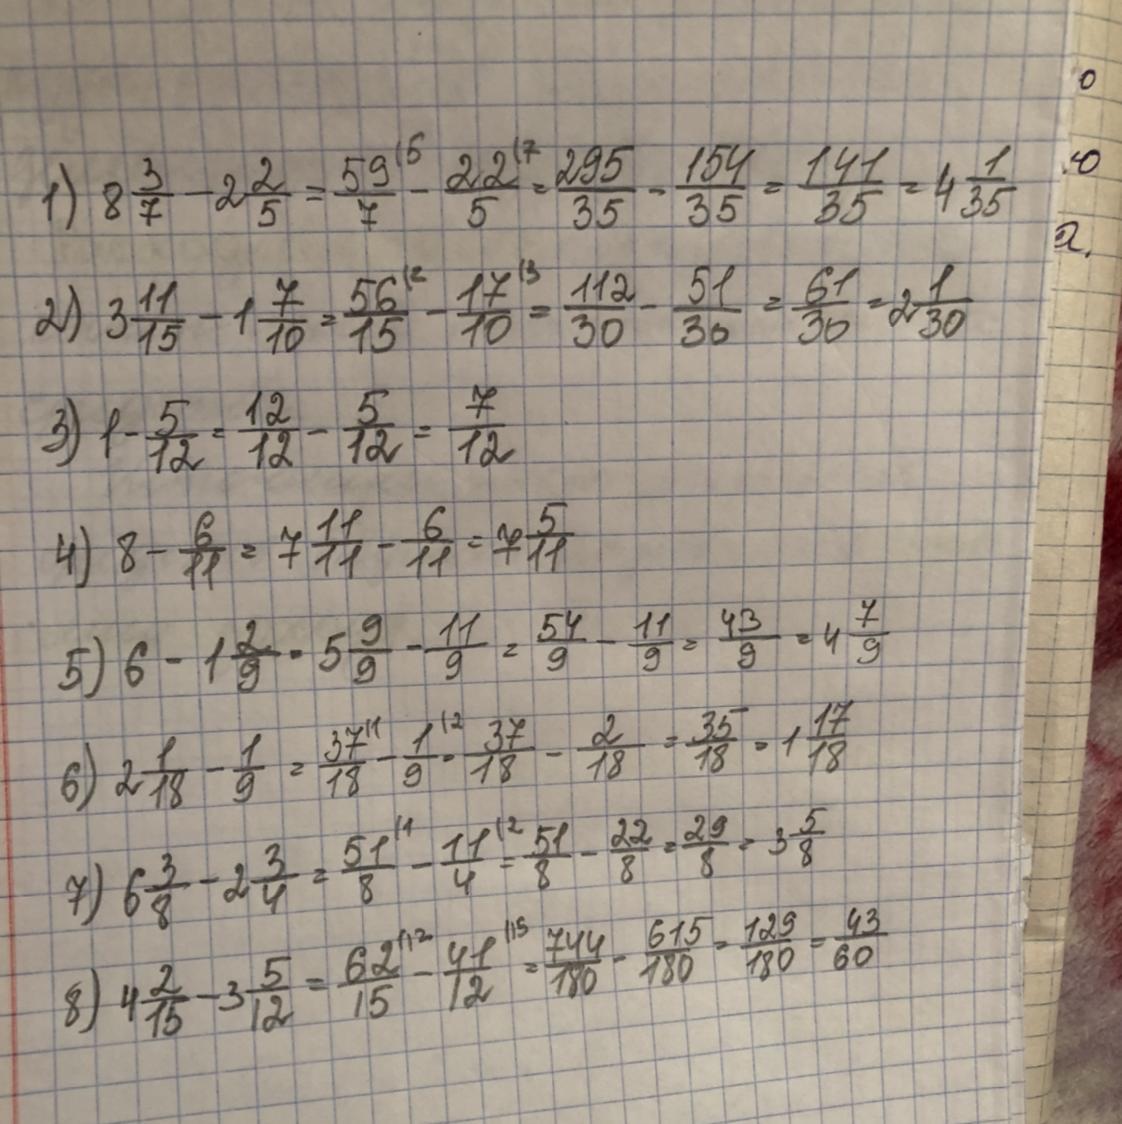 1) 8 3/7 - 2 2/5 = 59/7 (5 - 22/5 (7 = 295/35 - 154/35 = 141/35 = 4 1/35
2) 3 11/15 - 1 7/10 = 56/15 (2 - 17/10 (3 = 112/30 - 51/30 = 61/30 = 2 1/30
3) 1 - 5/12 = 12/12 - 5/12 = 7/12
4) 8 - 6/11 = 7 11/11 - 6/11 = 7 5/11
5) 6 - 1 2/9 = 5 9/9 - 11/9 = 54/9 - 11/9 = 43/9 = 4 7/9
6) 2 1/18 - 1/9 = 37/18 (1 - 1/9 (2 = 37/18 - 2/18 = 35/18 = 1 17/18
7) 6 3/8 - 2 3/4 = 51/8 (1 - 11/4 (2 = 51/8 - 22/8 = 29/8 = 3 5/8
8) 4 2/15 - 3 5/12 = 62/15 (12 - 41/12 (15 = 744/180 - 615/180 = 129/180 = 43/60